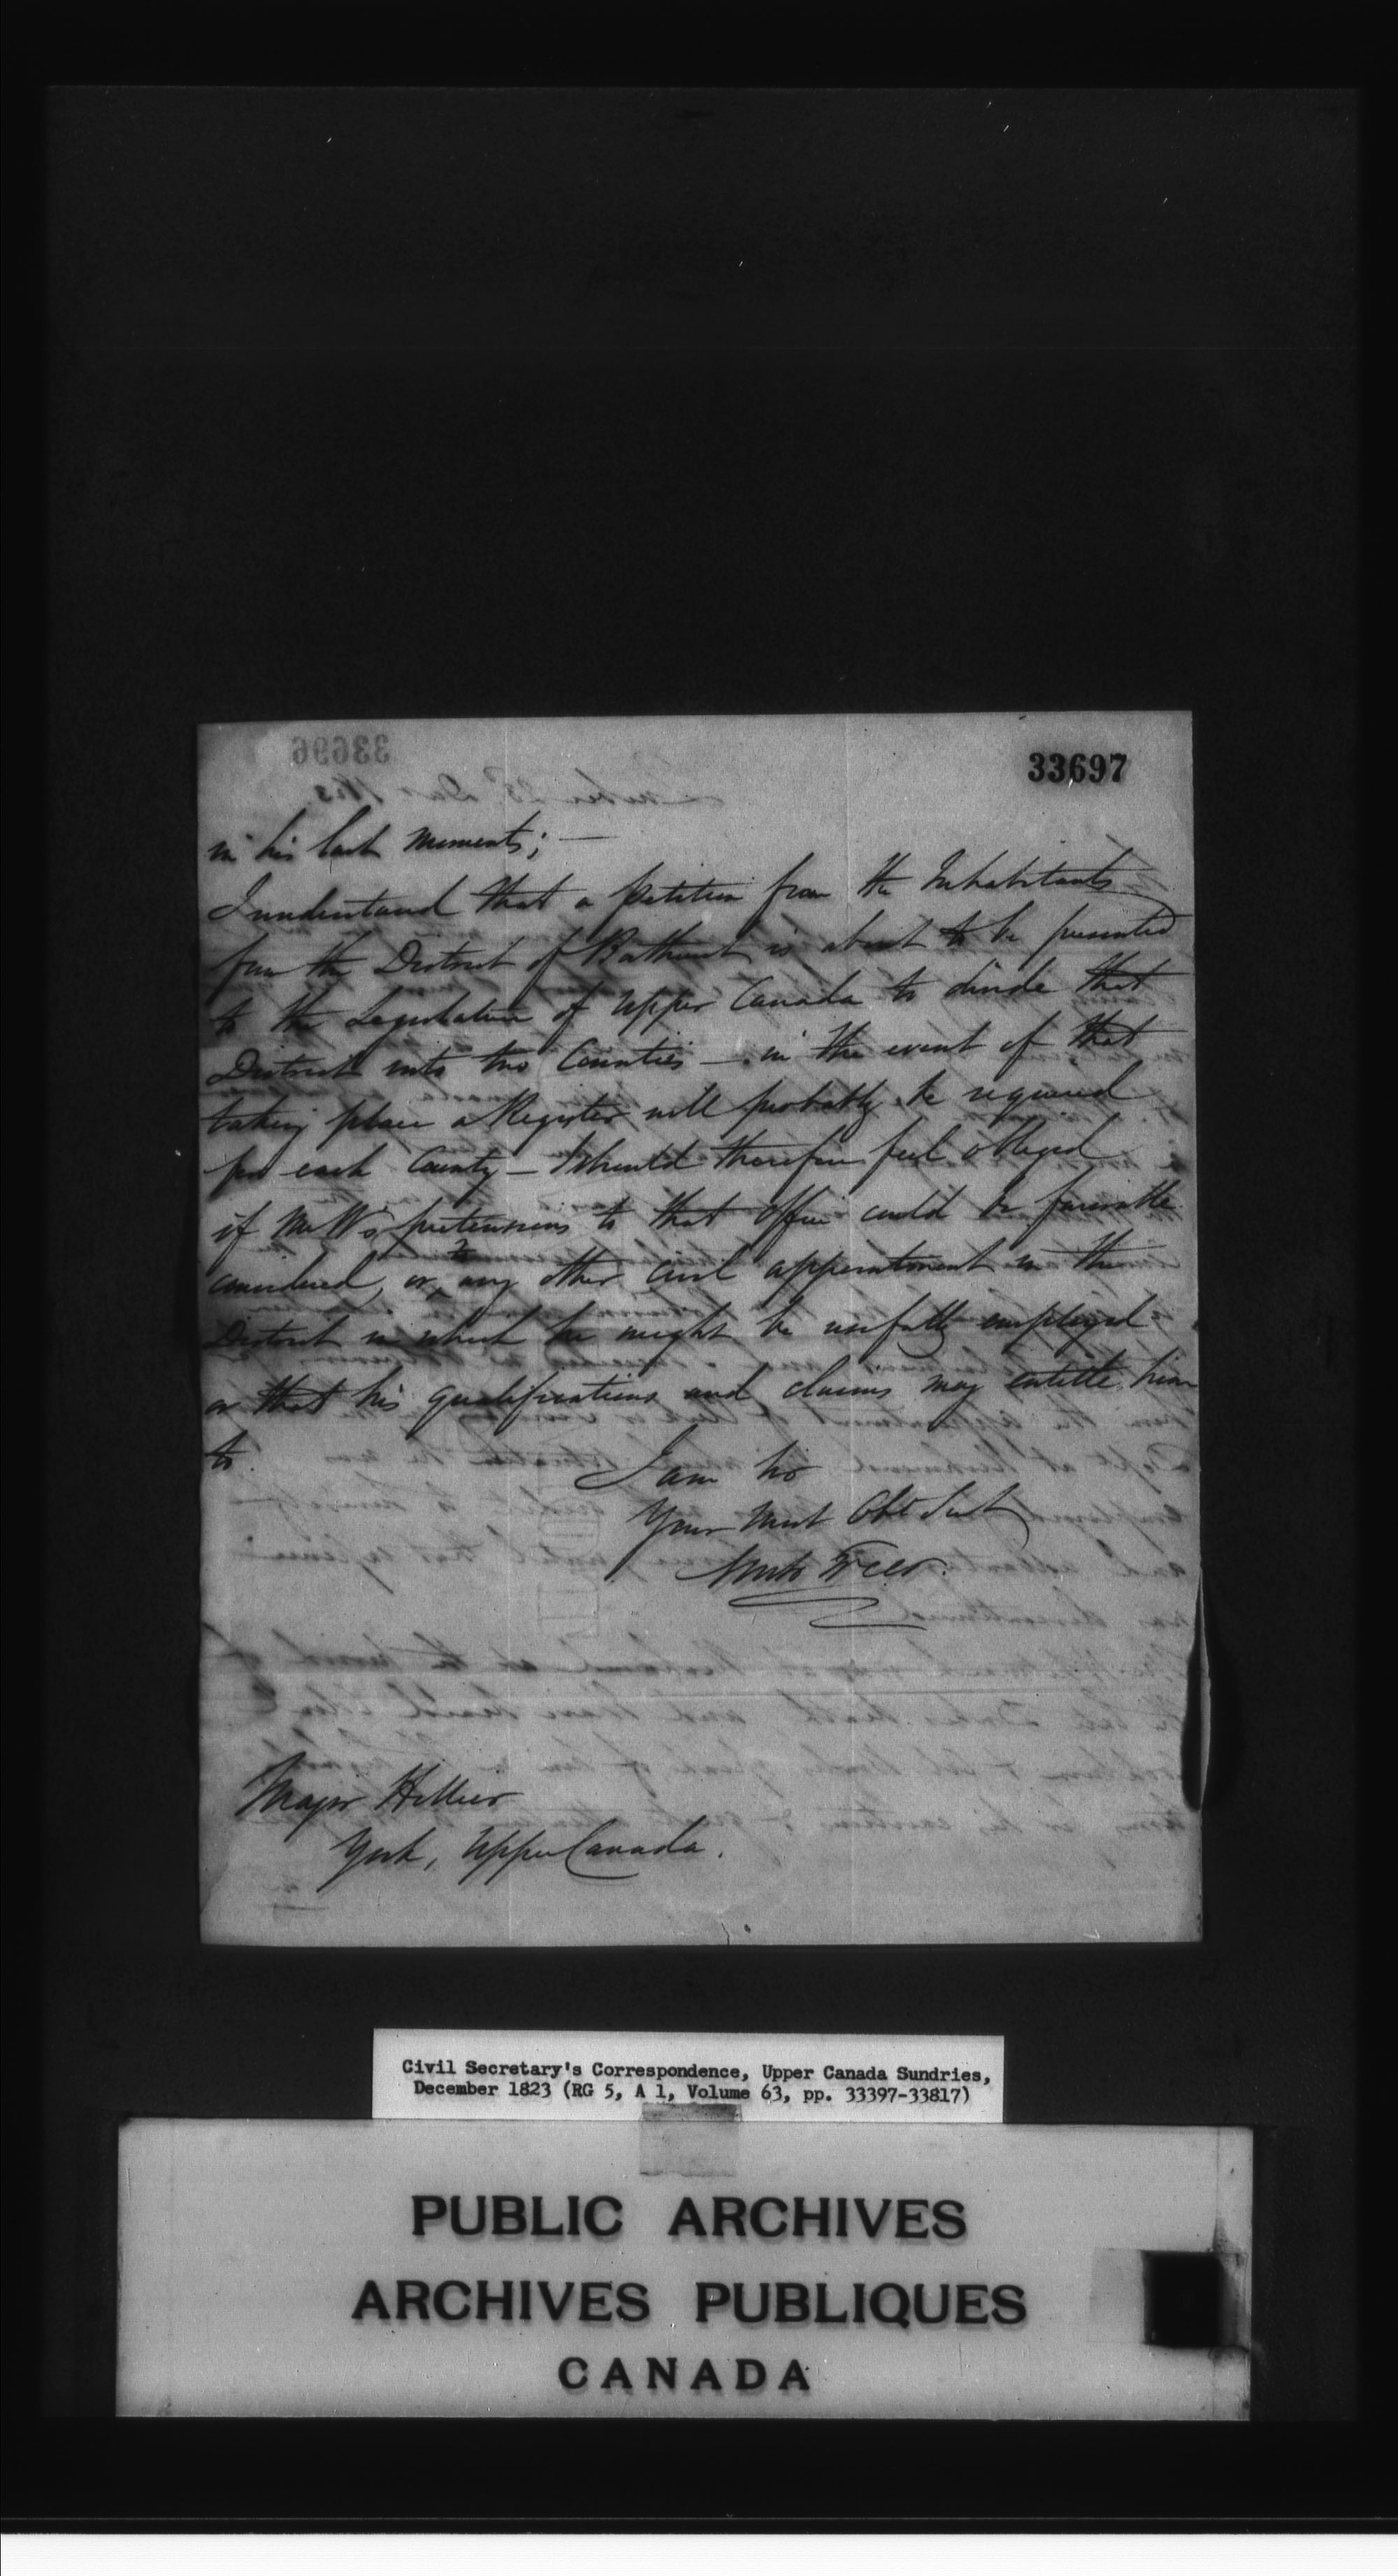 33697
in his last moments; —
I understand that a petition from the Inhabitants
from the District of Bathurst is about to be presented
to the Legislature of Upper Canada to divide that
District into two Counties — in the event of that
taking place a Register will probably be required
for each County — I should therefore feel obliged
if Mr W's pretensions to that office could be favorably
considered, or to any other civil appointment in the
District in which he might be usefully employed
or that his qualifications and claims may entitle him
to.
I am Sir
Your most Obt Servt
Noah Freer.
Major Hillier
York, Upper Canada.
Civil Secretary's Correspondence, Upper Canada Sundries,
December 1823 (RG 5, A 1, Volume 63, pp. 33397-33817)
PUBLIC ARCHIVES
ARCHIVES PUBLIQUES
CANADA